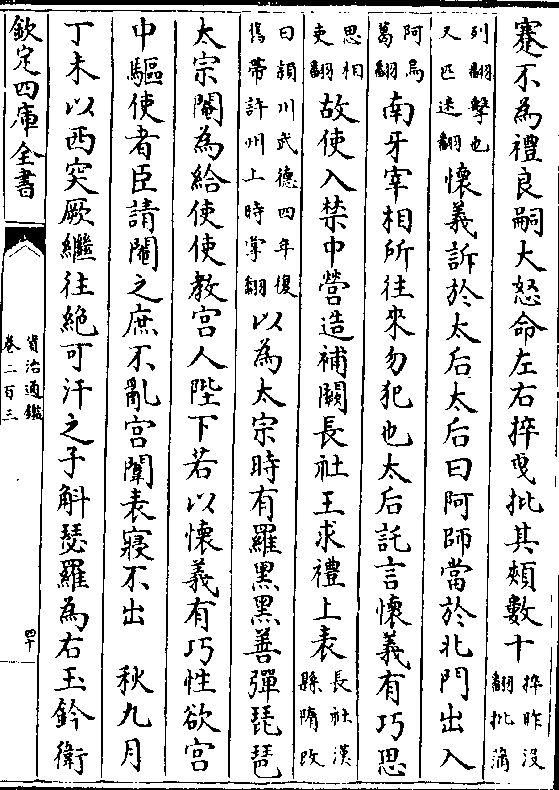 蹇不為禮良嗣大怒命左右捽曳批其頰數十捽昨没翻批蒲
列翻擊也又匹迷翻懷義訴於太后太后曰阿師當於北門出入
阿烏葛翻南牙宰相所往來勿犯也太后託言懷義有巧思
思相吏翻故使入禁中營造補闕長社王求禮上表長社漢縣隋改
曰潁川武德四年復舊帶許州上時掌翻以為太宗時有羅黑黑善彈琵琶
太宗閹為給使使教宮人陛下若以懷義有巧性欲宮
中驅使者臣請閹之庶不亂宮闈表寢不出　秋九月
丁未以西突厥繼往絶可汗之子斛瑟羅為右玉鈐衛
欽定四庫全書
資治通鑑
卷二百三
四十